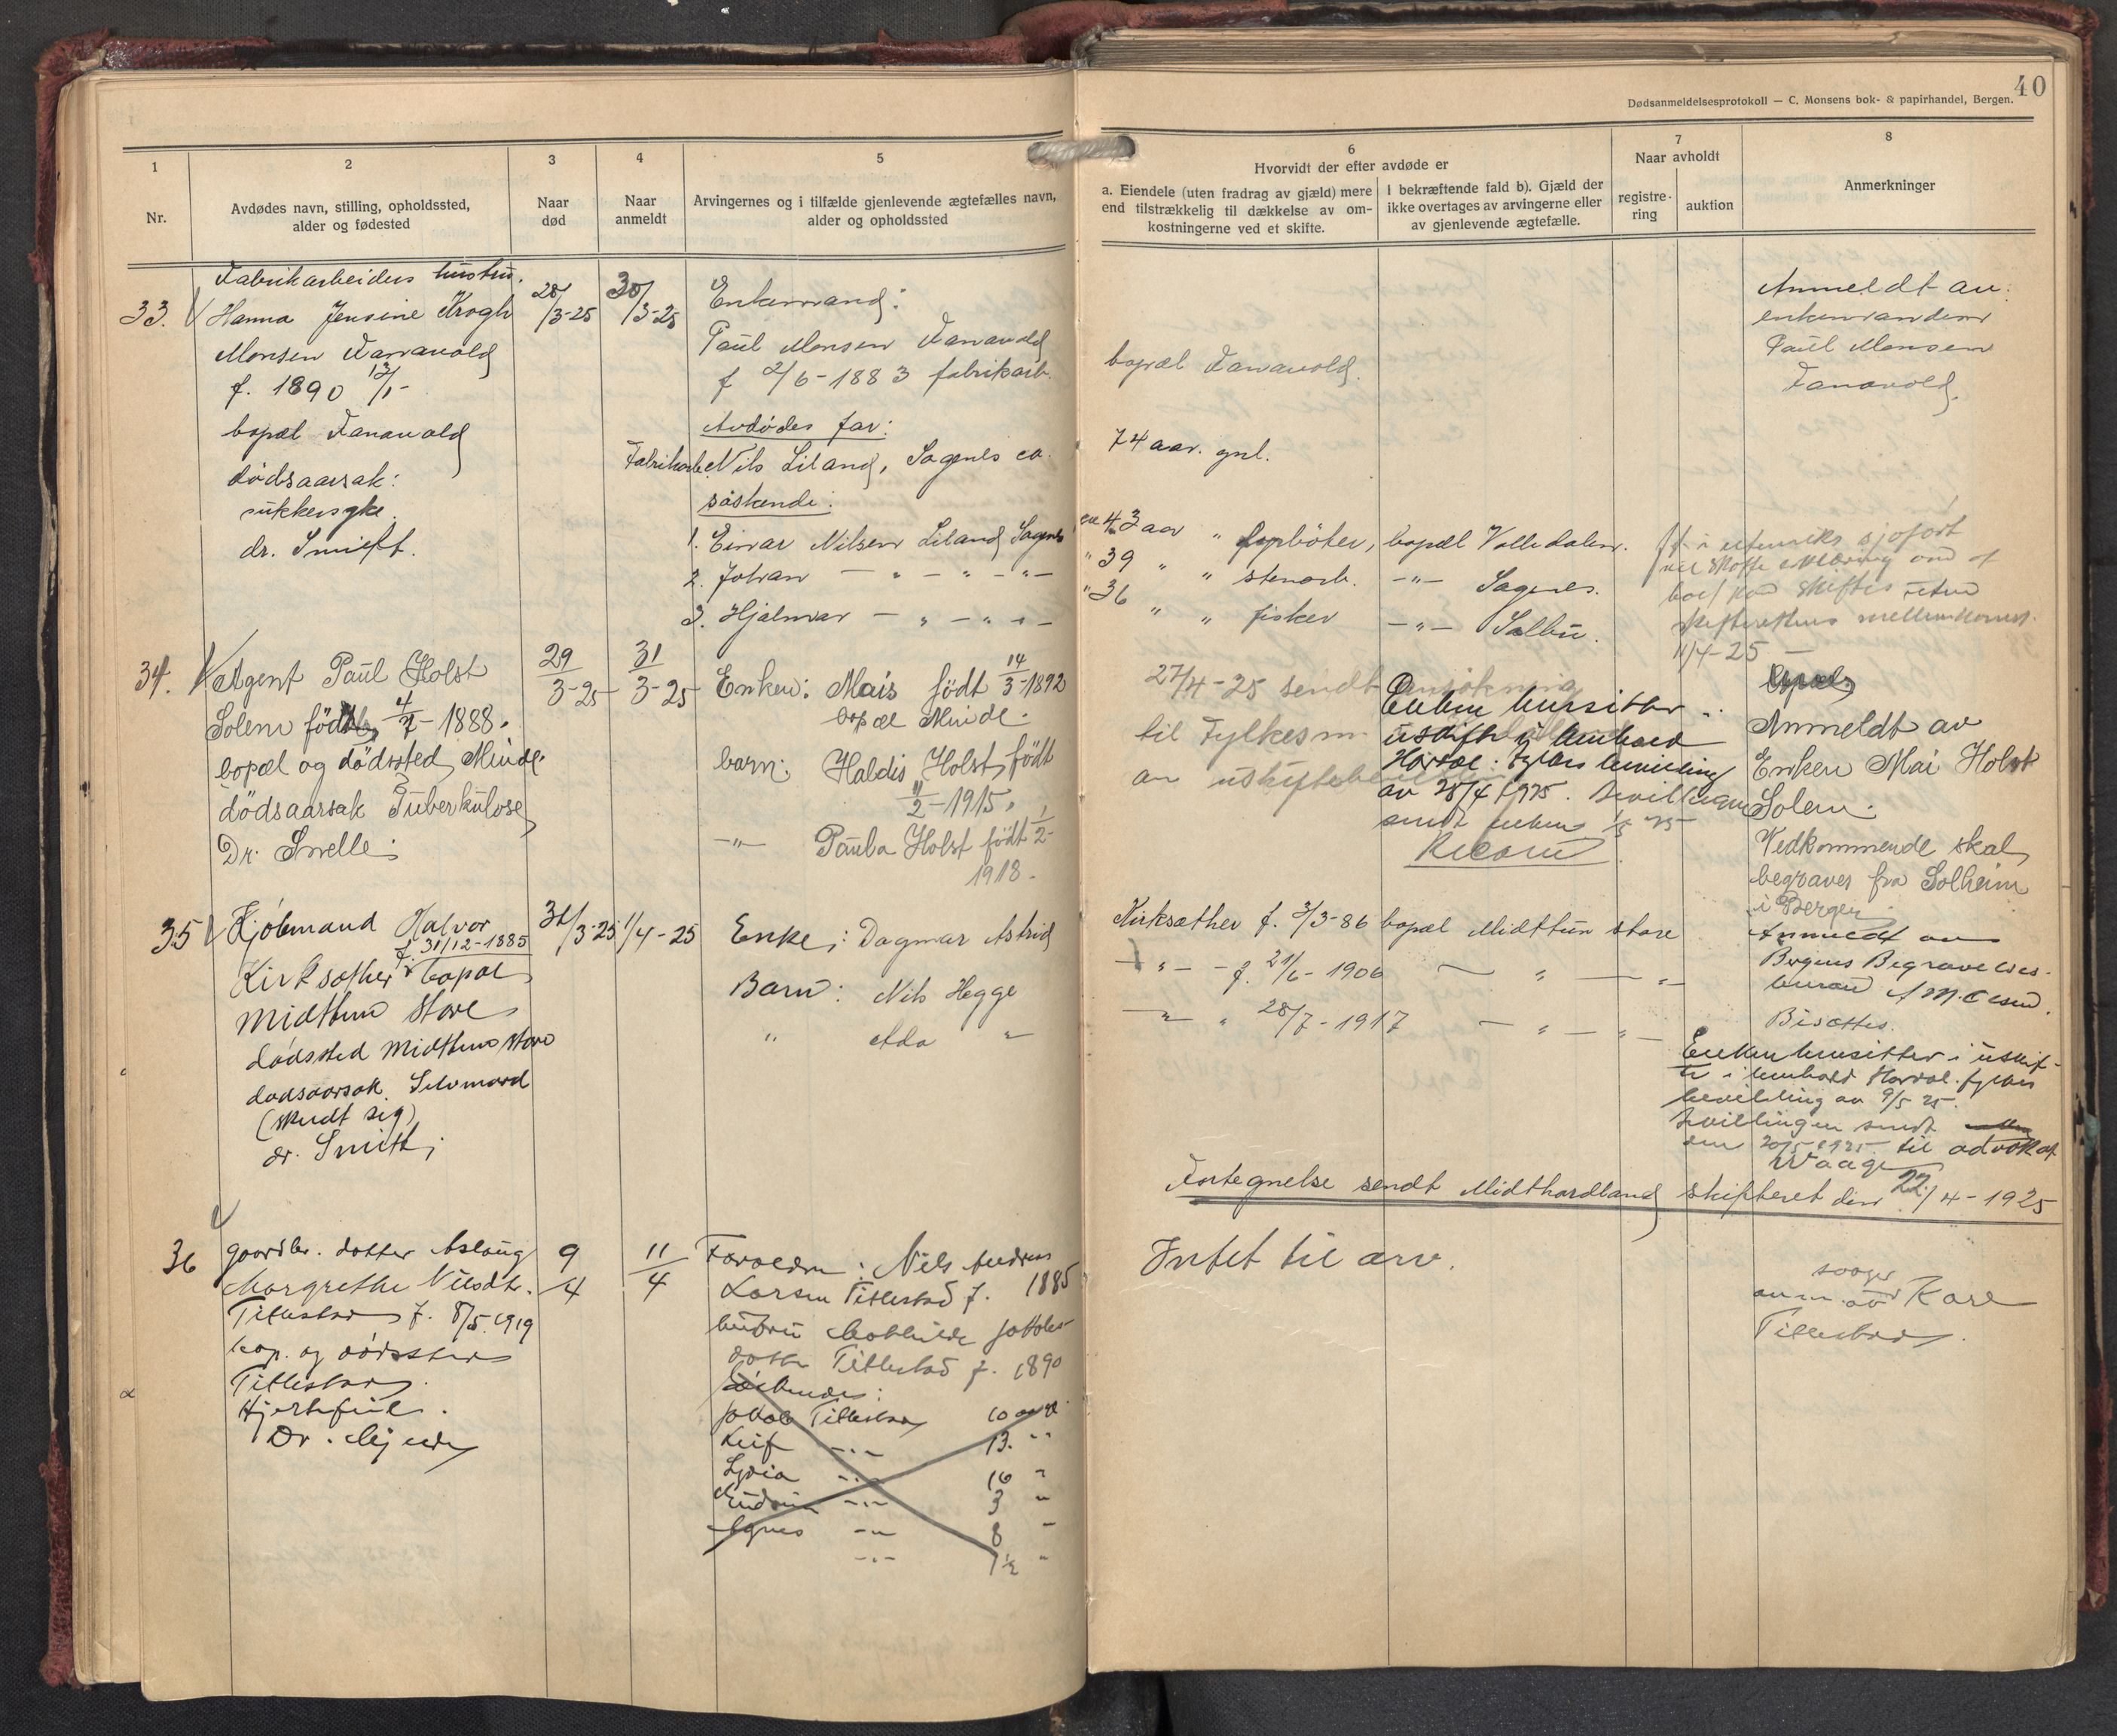 40
Dødsanmeldelsesprotokoll — C. Monsens bok- & papirhandel, Bergen.
1
Nr.
2
Avdødes navn, stilling, opholdssted,
alder og fødested
3
Naar
død
4
Naar
anmeldt
5
Arvingernes og i tilfælde gjenlevende ægtefælles navn,
alder og opholdssted
6
Hvorvidt der efter avdøde er
a. Eiendele (uten fradrag av gjæld) mere
end tilstrækkelig til dækkelse av om-
kostningerne ved et skifte.
I bekræftende fald b). Gjæld der
ikke overtages av arvingerne eller
av gjenlevende ægtefælle.
7
Naar avholdt
registre-
ring
auktion
8
Anmerkninger
33.
Fabrikarbeiders hustru.
Hanna Jensine Krogh
Monsen Fanavold
f. 1890 13/1-
bopæl Fanavold
dödsaarsak:
sukkersyke.
dr.
28/3-25
30/3-25
Enkemand:
Paul Monsen Fanavold
f 2/6-1883 fabrikarb.
Avdödes far:
Fabrikarb. Nils Liland, Sagenes ca.
söskende:
1. Einar Nilsen Liland Sagenes
2. Johan — " — " — " —
3. Hjalmar — " — " — " —
bopæl Fanavold.
74 aar. gml.
ca 43 aar " bopæl
" 39 " " stenarb. — " — Sagenes.
" 36 " " fisker — " — Salbu.
Anmeldt av:
enkemanden
Paul Monsen
Fanavold.
i utenriks sjøfart
om
boet kan skiftes uten
skifterettens mellemkomst.
11/4-25 —
34.
Agent Paul Holst
Solem född 4/2-1888.
bopæl og dödssted Minde.
dödsaarsak Tuberkulose
Dr. Snelle.
29/3-25
31/3-25
Enken: Mais födt 14/3-1892
bopæl Minde.
barn: Haldis Holst födt
11/2-1915.
— " — Paula Holst födt 1/2-
1918.
27/4-25 sendt Ansökning
til Fylkesm.
av uskiftebevilling
Enken hensitter i
uskifte i henhold
Hordal. fylkes bevilling
av 28/4 1925. Bevillingen
sendt enken 1/5 25
Anmeldt av
Enken Mai Holst
Solem.
Vedkommende skal
begraves fra Solheim
i Bergen
35
Kjöbmand Halvor
f. 31/12-1885
Kirksæther bopæl
Midttun store
dödssted Midttun store
dödsaarsak Selvmord
(skudt sig)
dr. Smith
31/3-25
1/4-25
Enke: Dagmar Astrid
Barn: Nils Hegge
" Ada "
Kirksæther f. 3/3-86 bopæl Midttun store
— " — f. 21/6-1906 — " — " —
— " — " 28/7-1917 — " — " —
Anmeldt av
Bergens Begravelses-
bureau A M. Olsen.
Bisættes.
Enken hensitter i uskif-
te i henhold Hordal. fylkes
bevilling av 9/5 25.
Bevillingen sendt
den 20/5 1925 til advokat
Waage
Fortegnelse sendt Midthordland skifteret den 22/4-1925
36
gaardbr. datter Aslaug
Margrethe Nilsdtr.
Titlestad f. 8/5.1919
bop. og dödssted
Titlestad.
Hjertefeil.
Dr.
9/4
11/4
Foreldre: Nils Andreas
Larsen Titlestad f. 1885
hustru Mathilde Jakobs-
datter Titlestad f. 1890
Söskende:
Jakob Titlestad 10 aar
Leif — " — 13. "
Lydia — " — 16 "
Gudrun — " — 3 "
Agnes — " — 8 "
— " — 1½ "
Intet til arv.
svoger
anm. av Kare
Titlestad.